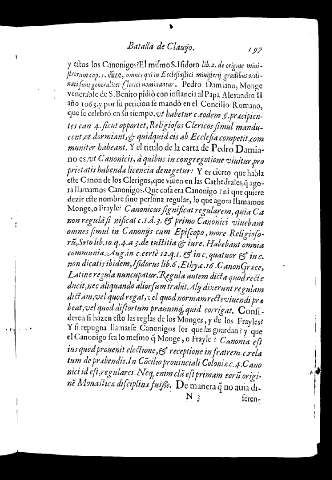 Batalla de Clauijo. 197
y estos los Canonigos? El mesmo S. Isidoro lib. 2. de origine mini-
steriorum cap. 1. dize, omnes qui in Ecclesiastici ministerij gradibus ordi-
nati sunt generaliter Clerici nominantur. Pedro Damiano, Monge
venerable de S. Benito pidiò con instancia al Papa Alexandro II
año 1063. y por su peticion se mandò en el Concilio Romano,
que se celebrò en su tiempo. vt habetur eodem §. præcipien-
tes can 4. sicut oportet, Religiosos Clericos simul mandu-
cent, et dormiant, & quidquid eis ab Ecclesia competit com
muniter habeant. Y el titulo de la carta de Pedro Damia-
no es, vt Canonicis, à quibus in congregatione viuitur pro
prietatis habenda licencia denegetur: Y es cierto que habla
este Canon de los Clerigos, que viuen en las Cathedrales, q̃ ago-
ra llamamos Canonigos. Que cosa era Canonigo? si que quiere
dezir este nombre sino persona regular, lo que agora llamamos
Monge, o Frayle? Canonicus significat regularem, quia Ca
non regulā significat c. 1. d. 3. & primo Canonici viuebant
omnes simul in Canonijs cum Episcopo, more Religioso-
rũ, Soto lib. 10 q. 4. a 3. de iustitia & iure. Habebant omnia
communia. Aug. in c certè 12. q. 1. & in c, quatuor & in c.
non dicatis ibidem, Isidorus lib. 6. Ethyc. 16. Canon Græcè,
Latinè regula nuncupatur. Regula autem dicta quod recte
ducit, nec aliquando aliorsum trahit. Alij dixerunt regulam
dictam, vel quod regat, vel quod normam rectè viuendi præ
beat, vel quod distortum prauumq; quid corrigat. Consi-
derese si hazen esto las reglas de los Monges, y de los Frayles?
Y si repugna llamasse Canonigos los que las guardan? y que
el Canonigo sea lo mesmo q̃ Monge, o Frayle? Canonia est
ius quod prouenit electione, & receptione in fratrem cæla
tum de præbendis. In Cōcilio prouinciali Colonie c. 4. Cano
nici id est, regulares Neq; enim clũ est primam eorũ origi-
nē Monastica disciplina fuisse. De manera q̃ no auia di-
N 3 feren-